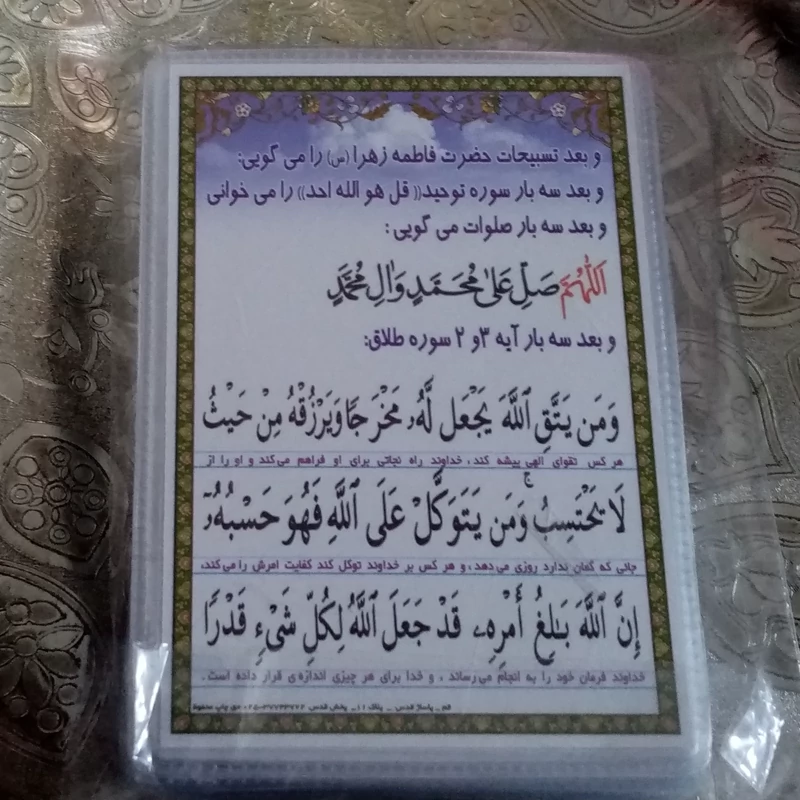 و بعد تسبیحات حضرت فاطمه زهرا (س) را می گویی:
و بعد سه بار سوره توحید(( قل هو الله احد)) را می خوانی
و بعد سه بار صلوات می گویی :
اَللّهُمَّ صَلِّ عَلیٰ مُحَمَّدٍ وَالِ مُحَمَّدٍ
و بعد سه بار آیه ۳ و ۲ سوره طلاق:
وَمَن يَتَّقِ ٱللَّهَ يَجْعَل لَّهُۥ مَخْرَجًا وَيَرْزُقْهُ مِنْ حَيْثُ
هر کس تقوای الهی پیشه کند، خداوند راه نجاتی برای او فراهم می‌کند و او را از
لَا يَحْتَسِبُ ۚ وَمَن يَتَوَكَّلْ عَلَى ٱللَّهِ فَهُوَ حَسْبُهُۥٓ
جائی که گمان ندارد روزی می‌دهد، و هر کس بر خداوند توکل کند کفایت امرش را می‌کند،
إِنَّ ٱللَّهَ بَـٰلِغُ أَمْرِهِۦ قَدْ جَعَلَ ٱللَّهُ لِكُلِّ شَىْءٍ قَدْرًا
خداوند فرمان خود را به انجام می‌رساند ، و خدا برای هر چیزی اندازه‌ی قرار داده است .
قم _ پاساژ قدس _ پلاک ۱۱_ پخش قدس حق چاپ محفوظ